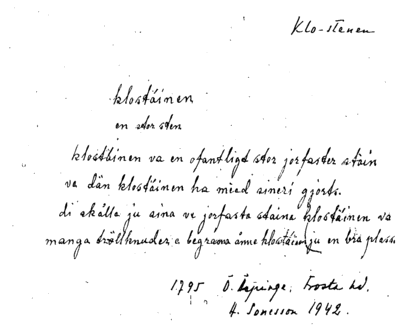 Klo-stenen
klostäinen
en stor sten
klostäinen va en ofantligt stor jorfaster stäin
va dän klostäinen ha mied gjorts.
di skålla ju aina ve jorfasta staina klostäinen va
manga trollknudera begravna ånne klostäinen ju en bra plass
1795 Ö. Espinge. Frosta hd.
H. Sonesson 1942.